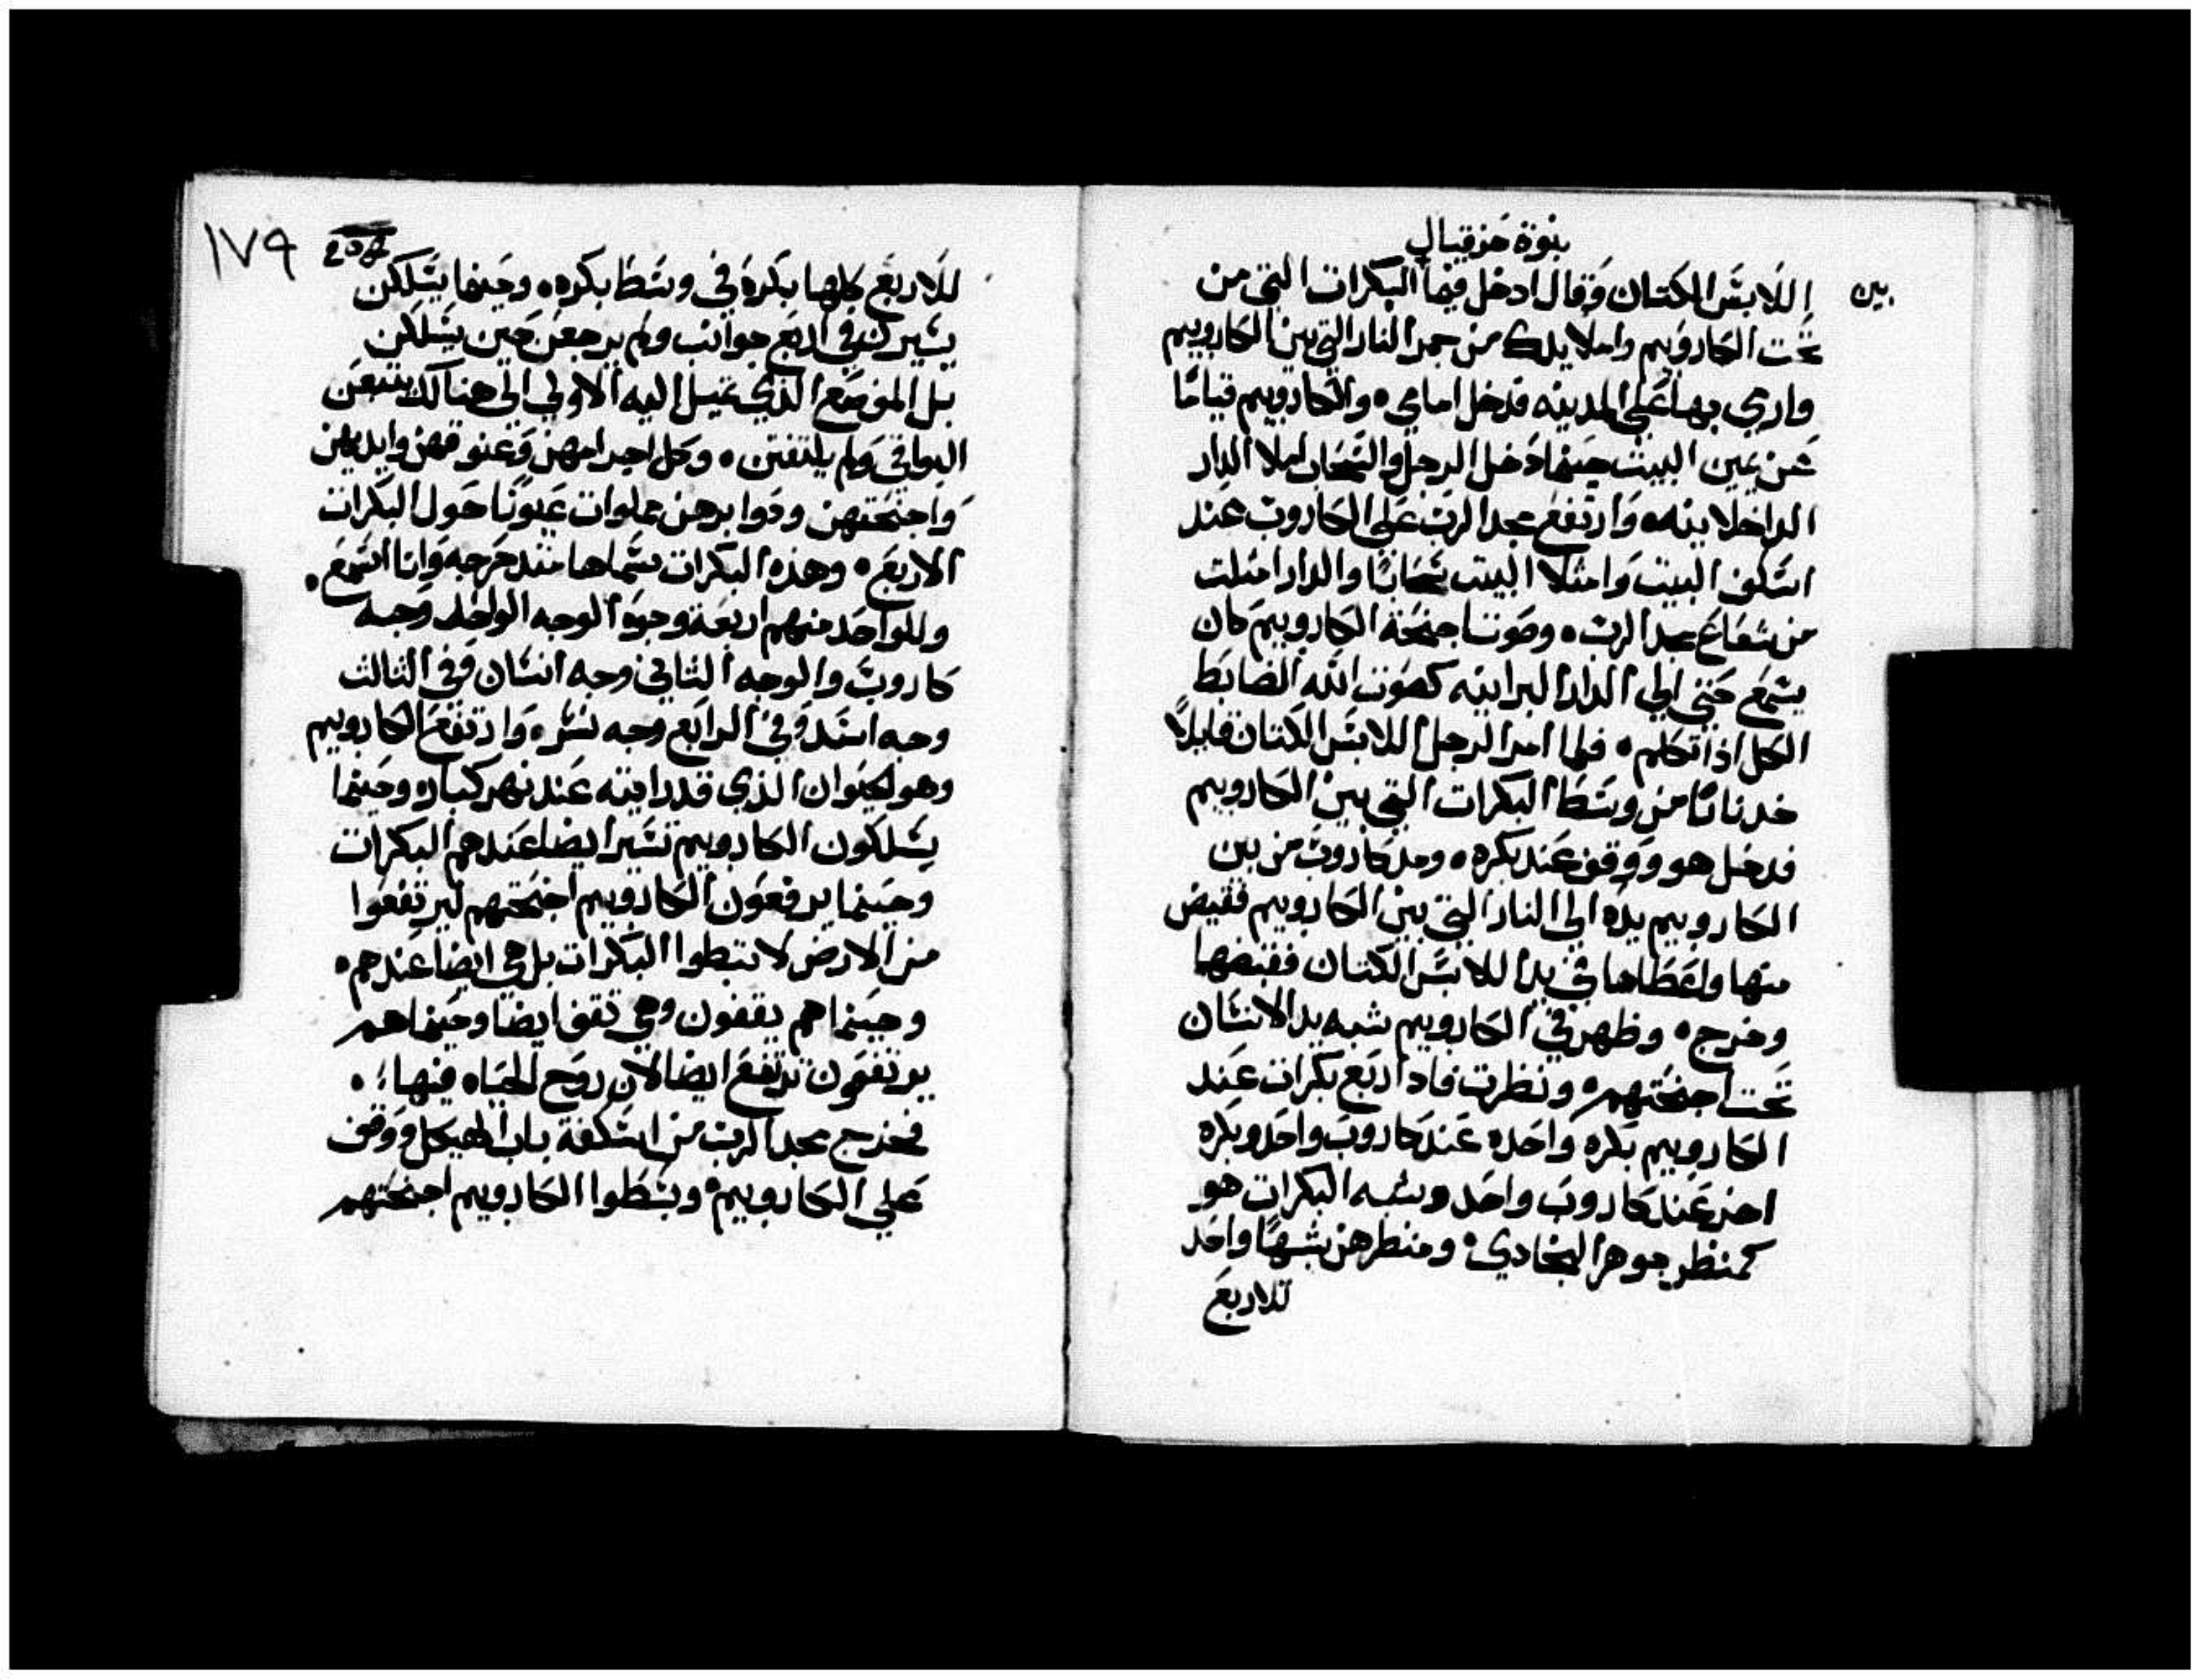 نبوة حزقيال
اللابس الكتان وقال ادخل فيما البكرات التي من
بين
تحت الكاروبيم واملا يدك من جمر النار التي بين الكاروبيم
وارمي بها علي المدينه فدخل امامي ه والكاروبيم قيامًا
عن يمين البيت حينما دخل الرجل والسحاب املا الدار
الداخلانيه ه وارتفع مجد الرب علي الكاروب عند
اسكفت البيت وامتلا البيت سحابًا والدار امتلت
من شعاع مجد الرب ه وصوت اجنحة الكاروبيم كان
يسمع حتي الي الدار البرانيه كصوت الله الضابط
الكل اذا تكلم ه فلما امر الرجل اللابس الكتان قايلاً
خد نارًا من وسط البكرات التي بين الكاروبيم
فدخل هو ووقف عند بكره ه ومد كاروب من بين
الكاروبيم يده الي النار التي بين الكاروبيم فقبض
منها واعطاها في يد اللابس الكتان فقبضها
وخرج ه وظهر في الكاروبيم شبه يد الانسان
تحت اجنحتهم ه ونظرت فاذا اربع بكرات عند
الكاروبيم بكره واحده عند كاروب واحد وبكره
اخر عند كاروب واحد وشبه البكرات هو
كمنظر جوهر البخادي ه ومنظرهن شبهًا واحد
للاربع
١٧٩
للاربع كلها بكرة في وسط بكره ه وحينما يسلكن
يسيرن في اربع جوانب ولم يرجعن حين يسلكن
بل الموضع الذي تميل اليه الاولي الي هنالك يتبعن
البواقي ولم يلتفتن ه وكل اجرامهن وعنوقهن وايديهن
واجنحتهن ودوايرهن مملوات عيونًا حول البكرات
الاربع ه وهذه البكرات سماها متدحرجه وانا اسمع ه
وللواحد منهم اربعة وجوه الوجه الواحد وجه
كاروب والوجه الثاني وجه انسان وفي الثالث
وجه اسد وفي الرابع وجه نسر ه وارتفع الكاروبيم
وهو الحيوان الذي قد رايته عند نهر كبار ه وحينما
يسلكون الكاروبيم تسير ايضا عندهم البكرات
وحينما يرفعون الكاروبيم اجنحتهم ليرتفعوا
من الارض لا تبطوا البكرات بل هي ايضا عندهم ه
وحينما هم يقفون وهي تقف ايضا وحينما هم
يرتفعون ترتفع ايضا لان روح الحياه فيها ه
فخرج مجد الرب من اسكفة باب الهيكل ووقف
علي الكاروبيم ه وبسطوا الكاروبيم اجنحتهم